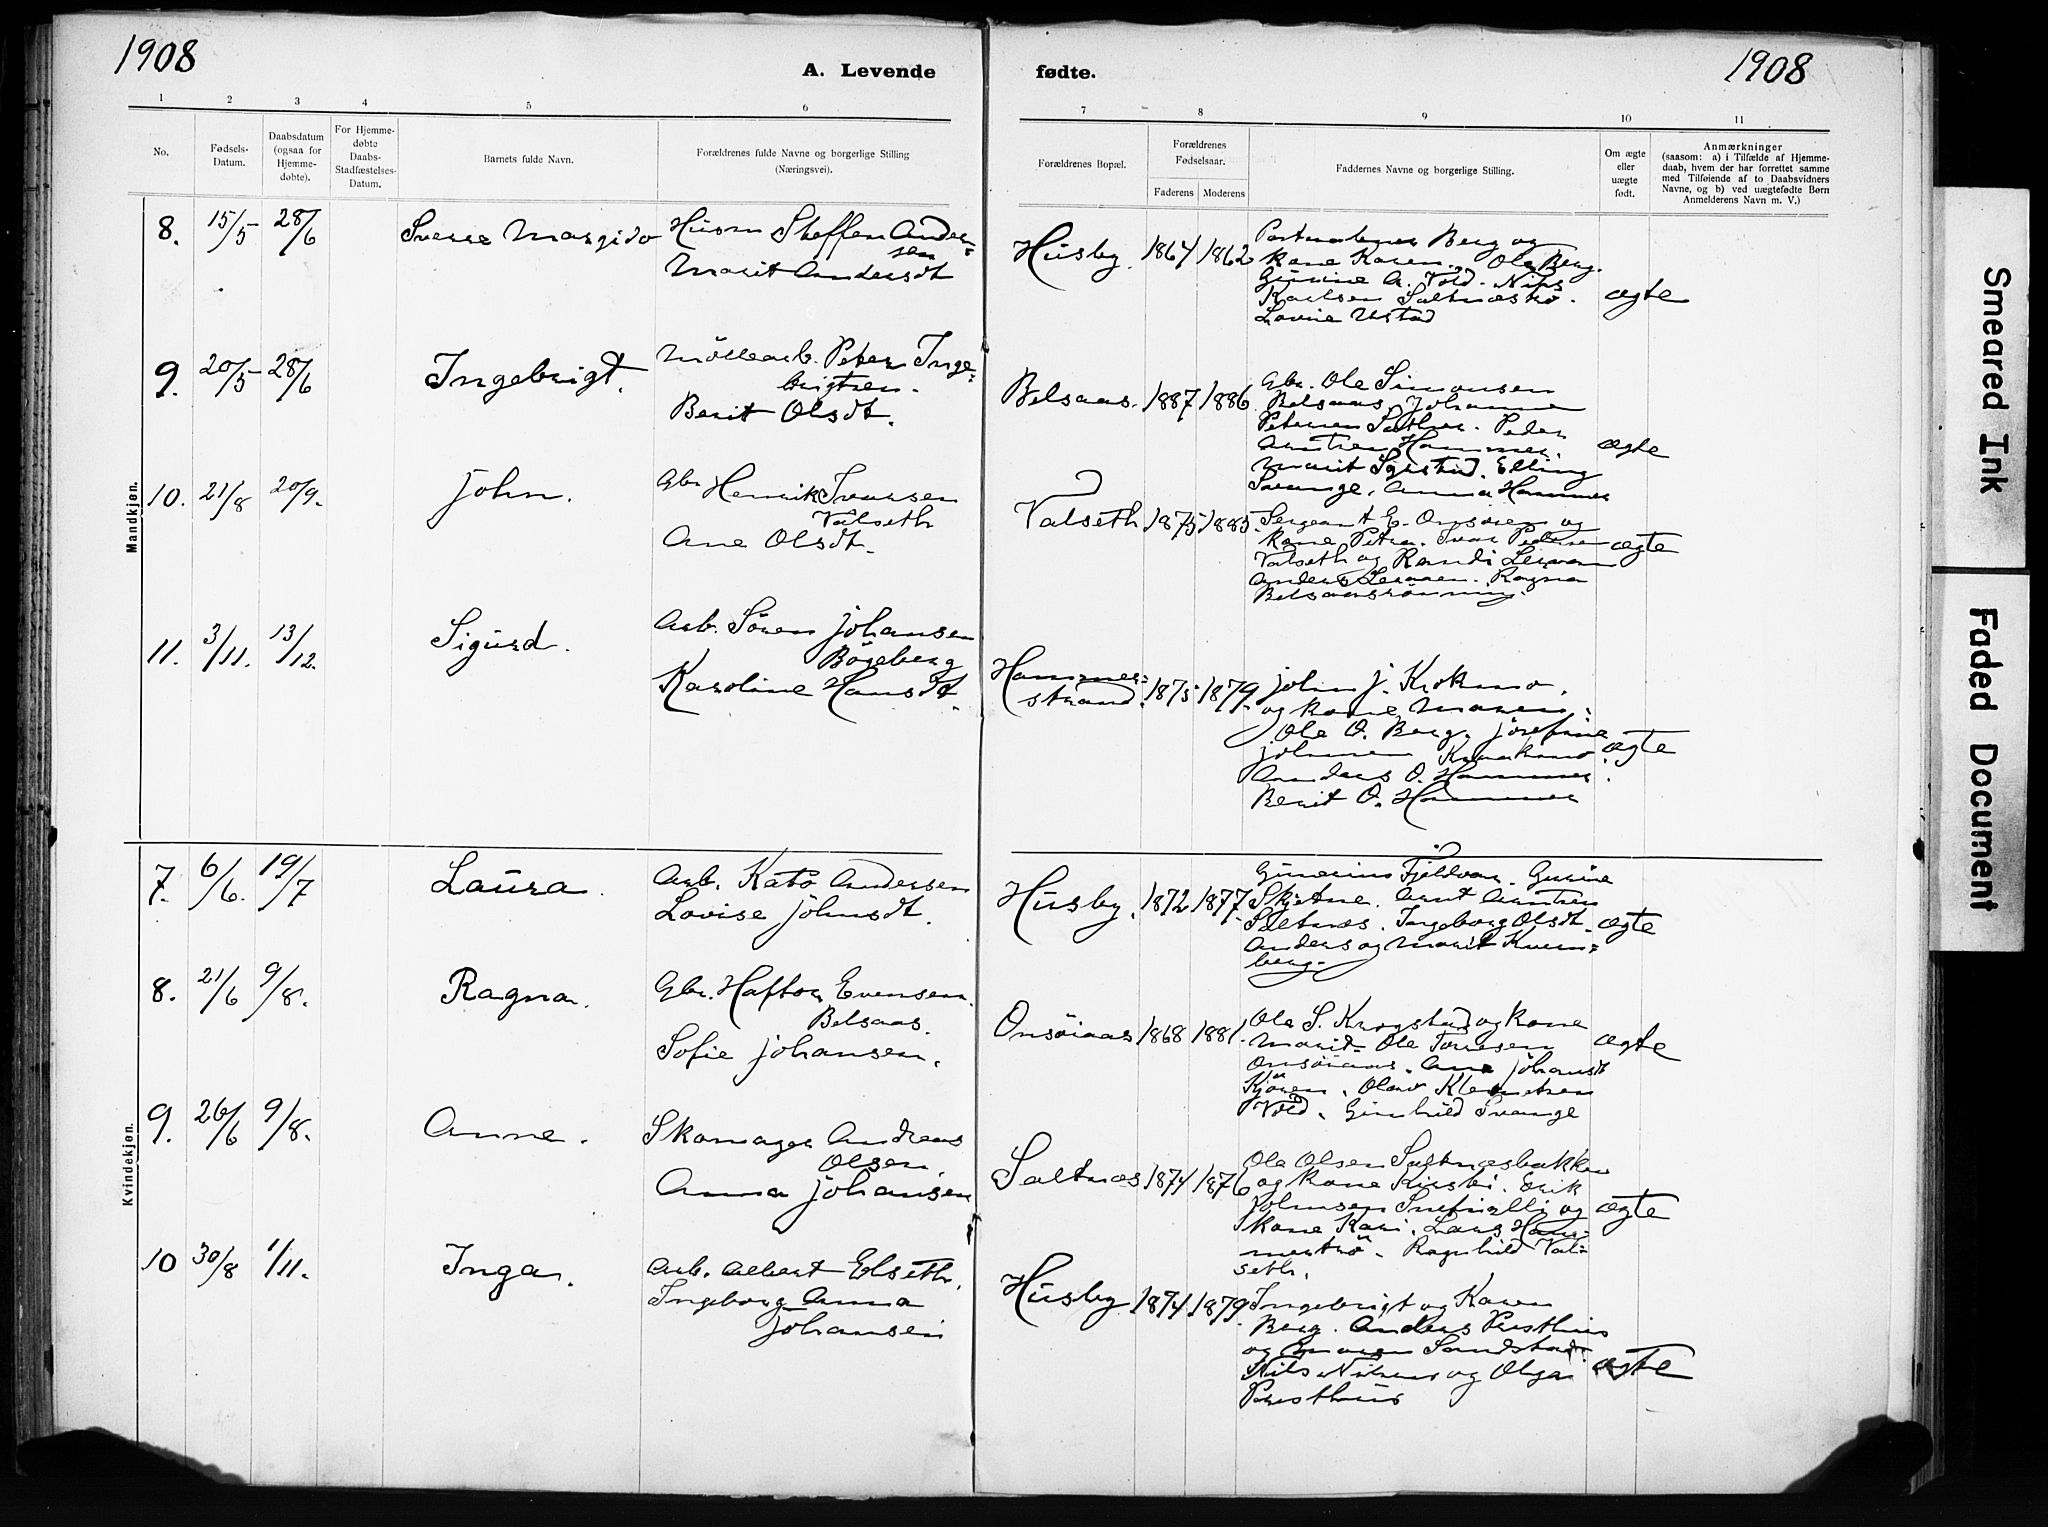 1908
A. Levende
fødte.
1908
1 2 3 4 5 6
7 8 9 10 11
No.
Fødsels-
Datum.
Daabsdatum
(ogsaa for
Hjemme-
døbte).
For Hjemme-
døbte
Daabs-
Stadfæstelses-
Datum.
Barnets fulde Navn.
Forældrenes fulde Navne og borgerlige Stilling
(Næringsvei).
Forældrenes Bopæl.
Forældrenes
Fødselsaar.
Faderens
Moderens
Faddernes Navne og borgerlige Stilling.
Om ægte
eller
uægte
født.
Anmærkninger
(saasom: a) i Tilfælde af Hjemme-
daab, hvem der har forrettet samme
med Tilføiende af to Daabsvidners
Navne, og b) ved uægtefødte Børn
Anmelderens Navn m. V.)
Mandkjøn.
8. 15/5 28/6 Sverre Margido
Husm Steffen Ander-
sen
Marit Andersdt
Husby. 1864 1862
Berg og
Kone Karen. Ola Berg.
A. Vold. Nils
Karlsen Saltnæstrø.
Lovise Ustad
ægte
9. 20/5 28/6 Ingebrigt.
Møllearb. Peter Inge-
brigtsen.
Berit Olsdt.
Belsaas. 1887 1886
Gbr. Ole Simonsen
Belsaas, Johanna
Petersen Sæther. Peder
Arntsen Hammer.
Marit Elling
Svange, Anna Hammer
ægte
10. 21/8 20/9. John.
Gbr Henrik Ivarsen
Valseth
Ane Olsdt.
Valseth 1875 1885.
Sergeant E. Onsøien og
Kone Petra. Ivar Pedersen
Valseth og Randi Leraan
Anders Leraaen. Ragna
Belsaasrønning.
ægte
11. 3/11. 13/12. Sigurd.
Arb. Søren Johansen
Bøgeberg
Karoline Hansdt.
Hammer-
strand. 1875 1879.
John J. Krokmo.
og kone Maren.
Ole O. Berg. Josefine
Johnsen
Anders O. Hammer.
Berit O. Hammer
ægte
Kvindekjøn.
7. 6/6. 19/7 Laura.
Arb. Kato Andersen
Lovise Johnsdt.
Husby. 1872 1877.
Gunerius Fjeldvær. Gurine
Skjetne. Arnt Arntsen
Saltnæs. Ingeborg Olsdt.
Anders og Marit Kvern-
berg.
ægte
8. 21/6 9/8. Ragna.
Gbr. Haftor Evensen.
Belsaas.
Sofie Johansen.
Onsøiaas 1868 1881.
Ole S. Krogstad og Kone
Marit. Ole Toresen
Onsøiaas. Ane Johansdt
Kjøren. Olava Klemetsen
Vold. Gunhild Svange
ægte
9. 26/6 9/8. Anne.
Skomager Andreas
Olsen.
Anna Johansen
Saltnæs 1874 1876
Ole Olsen Saltnæsbakken
og Kone Kirsti. Erik
Johnsen og
Kone Kari. Lars Ham-
mertrø. Ragnhild Val-
seth.
ægte
10 30/8 1/11. Inga.
Arb. Albert Elseth.
Ingeborg Anna
Johansen
Husby 1874. 1879.
Ingebrigt og Karen
Berg. Anders Presthus
og Maren Sandstad.
Nils Nilsens og Olga
Presthus
ægte
Smeared Ink
Faded Document